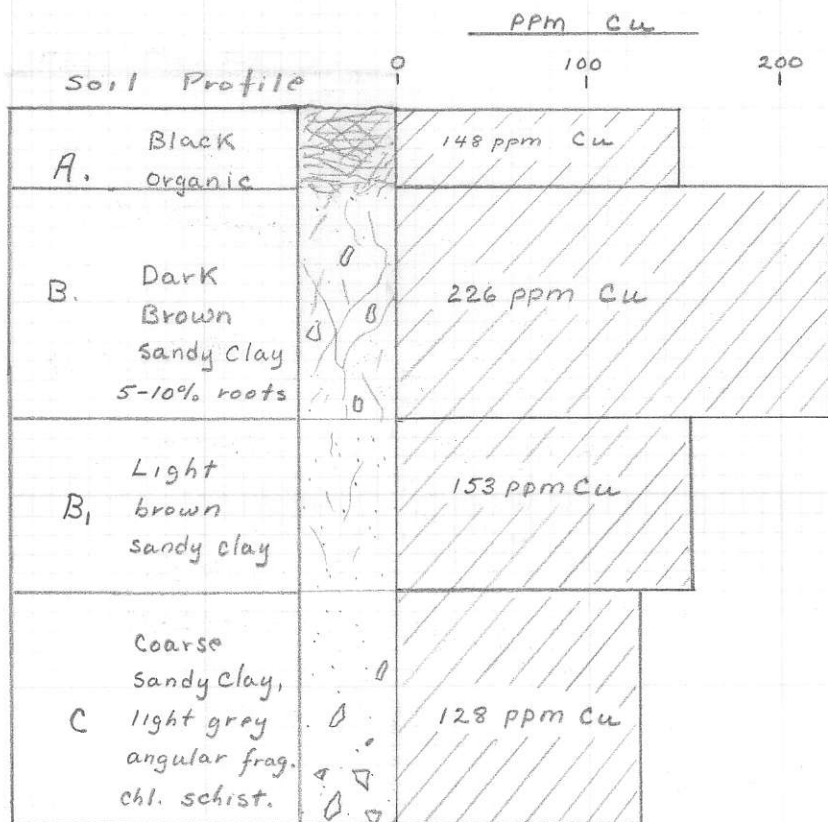 ppm Cu
0 100 200
Soil Profile
A. Black
Organic
148 ppm Cu
B. Dark
Brown
Sandy Clay
5-10% roots
226 ppm Cu
B₁ Light
brown
sandy clay
153 ppm Cu
C Coarse
sandy clay,
light grey
angular frag.
chl. schist.
128 ppm Cu